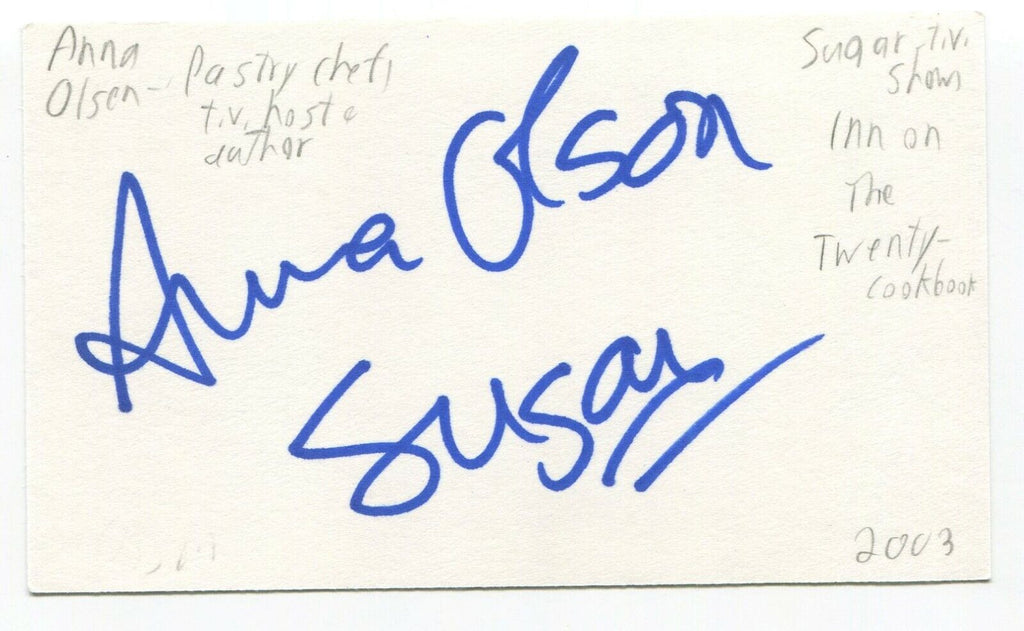 Anna
Olsen-
Pastry chef,
t.v. host &
author
Sugar t.v.
show
Inn on
The
Twenty-
cookbook
Anna Olson
Sugar
2003